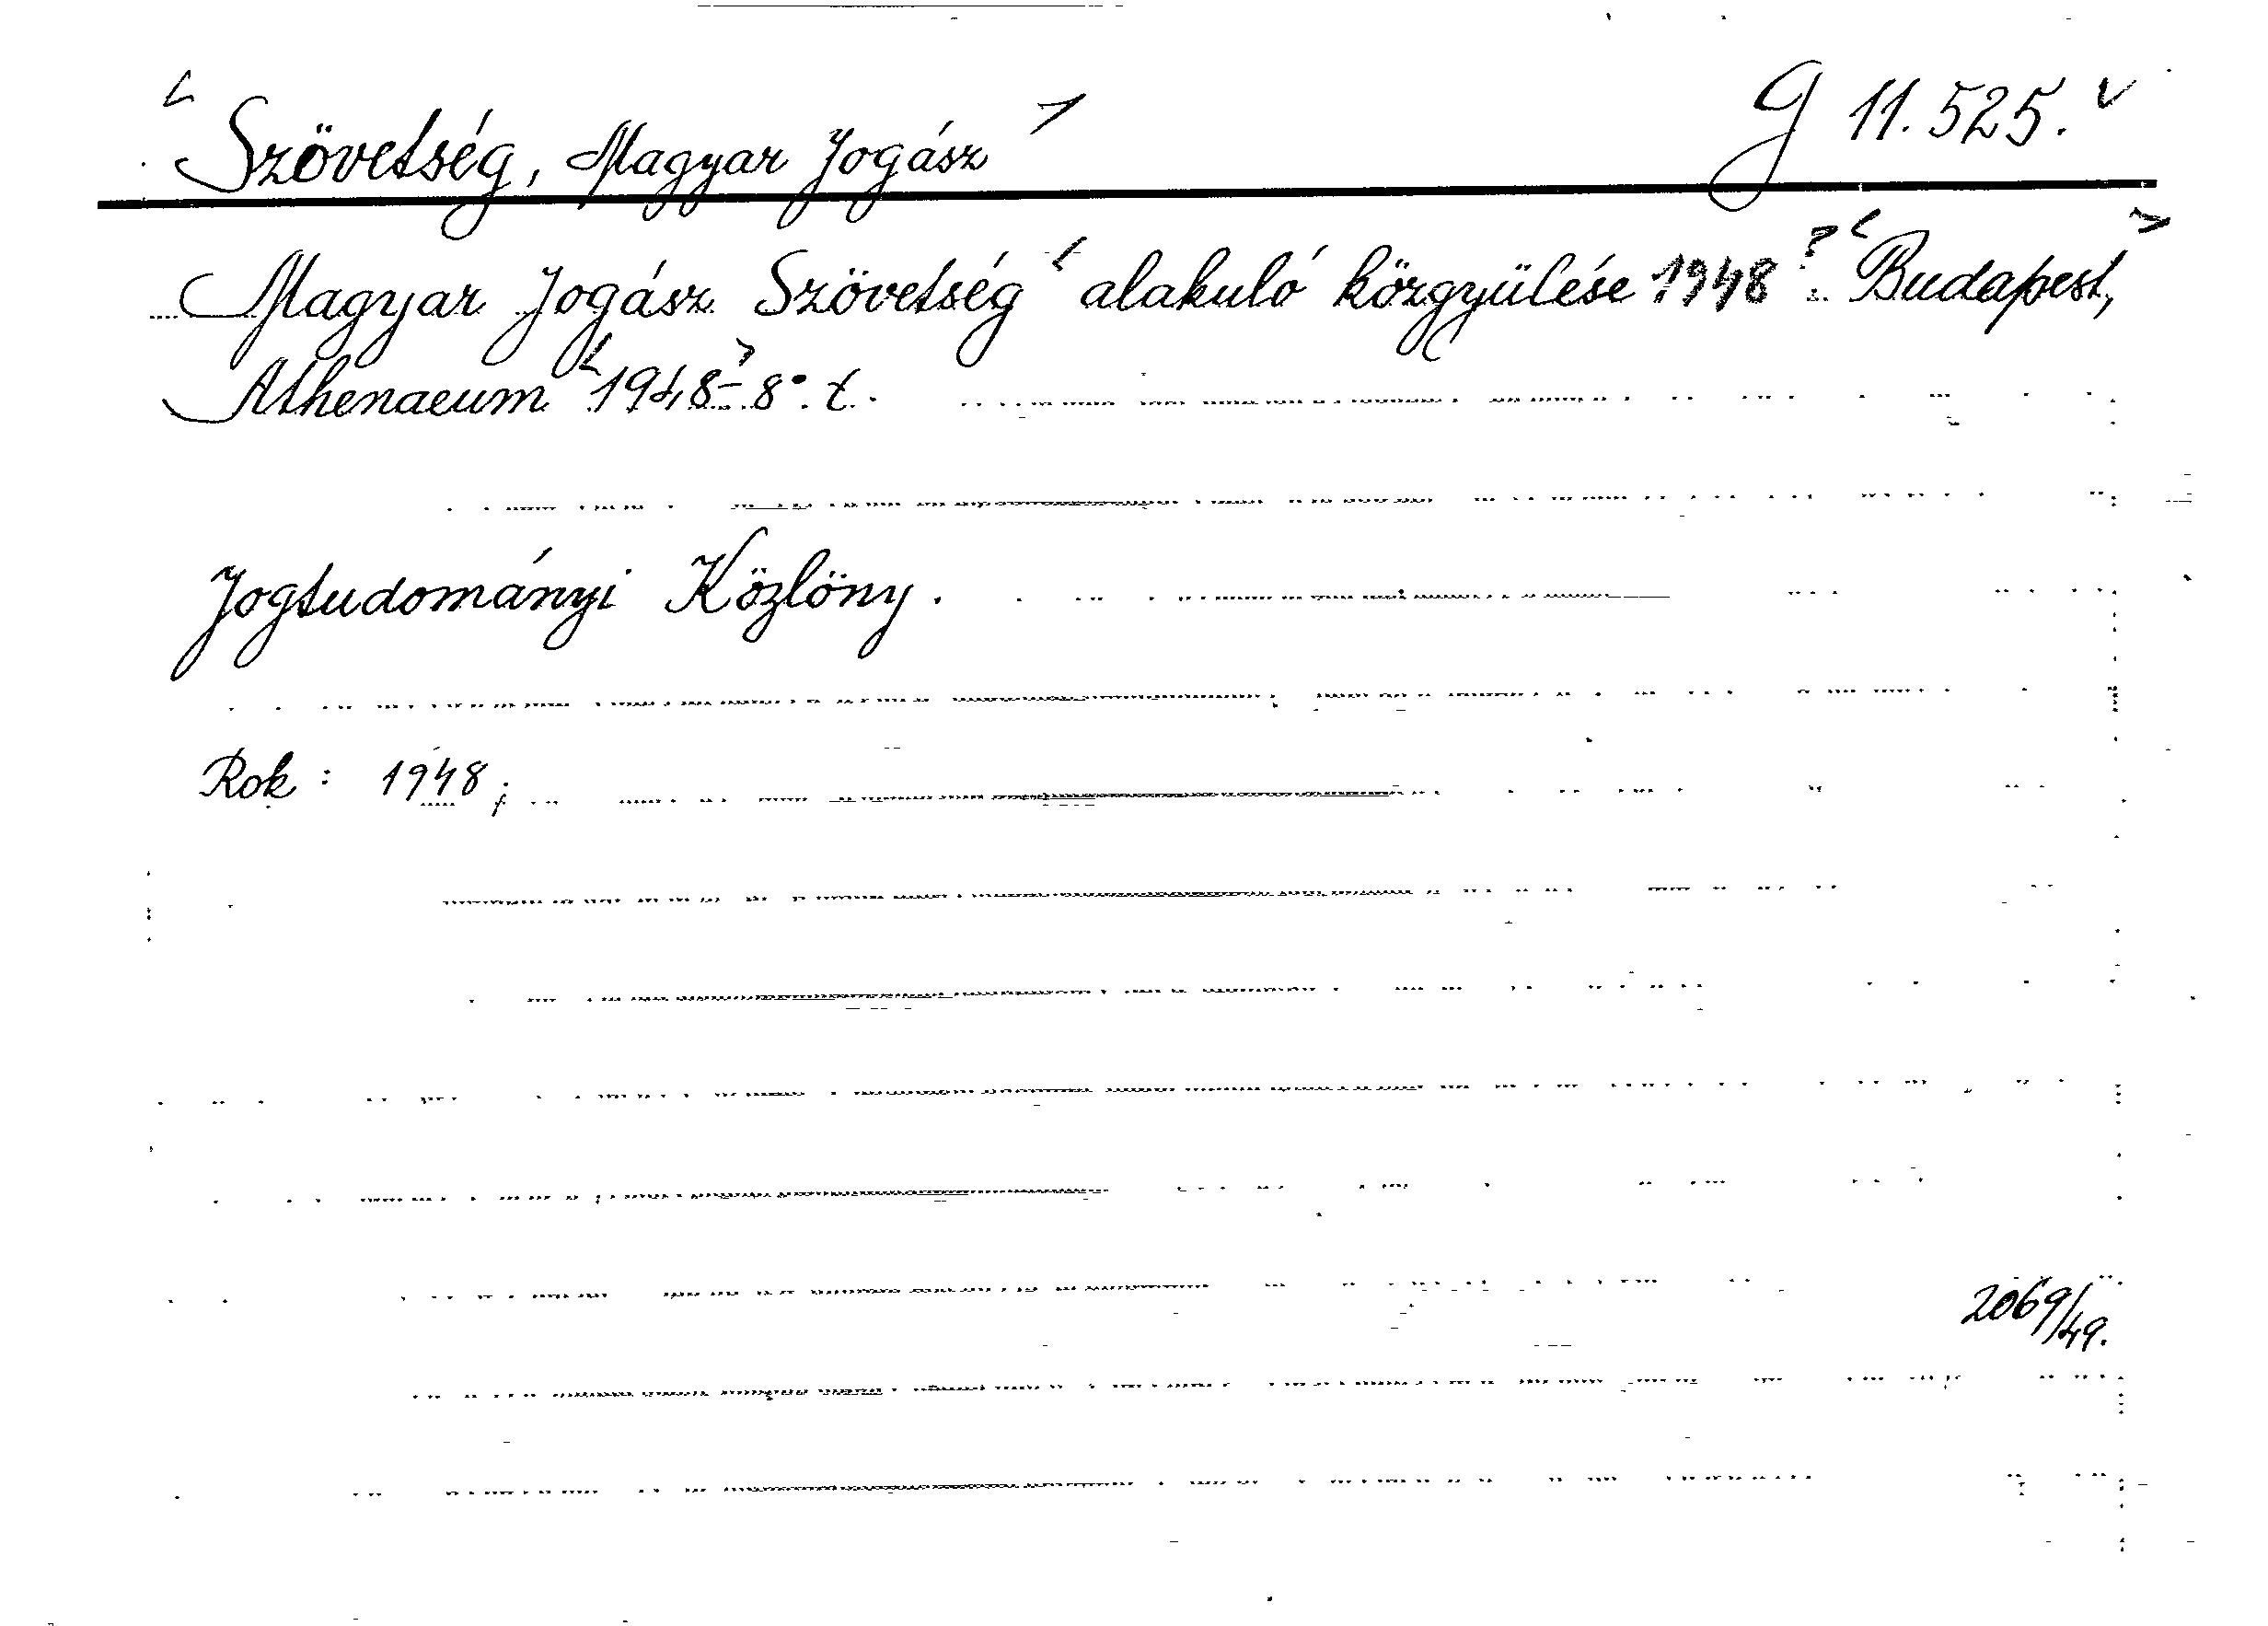 <Szövetség, Magyar Jogász> G 11.525.
Magyar Jogász Szövetség <alakuló közgyülése 1948?. <Budapest,>
Athenaeum <1948-> 8°. t.
Jogtudományi Közlöny.
Rok: 1948;
2069/49.